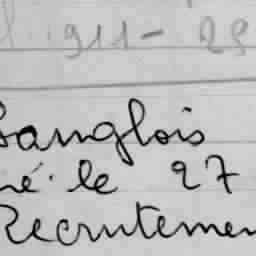 911 - 29
Langlois
né le 27
Recrutemen